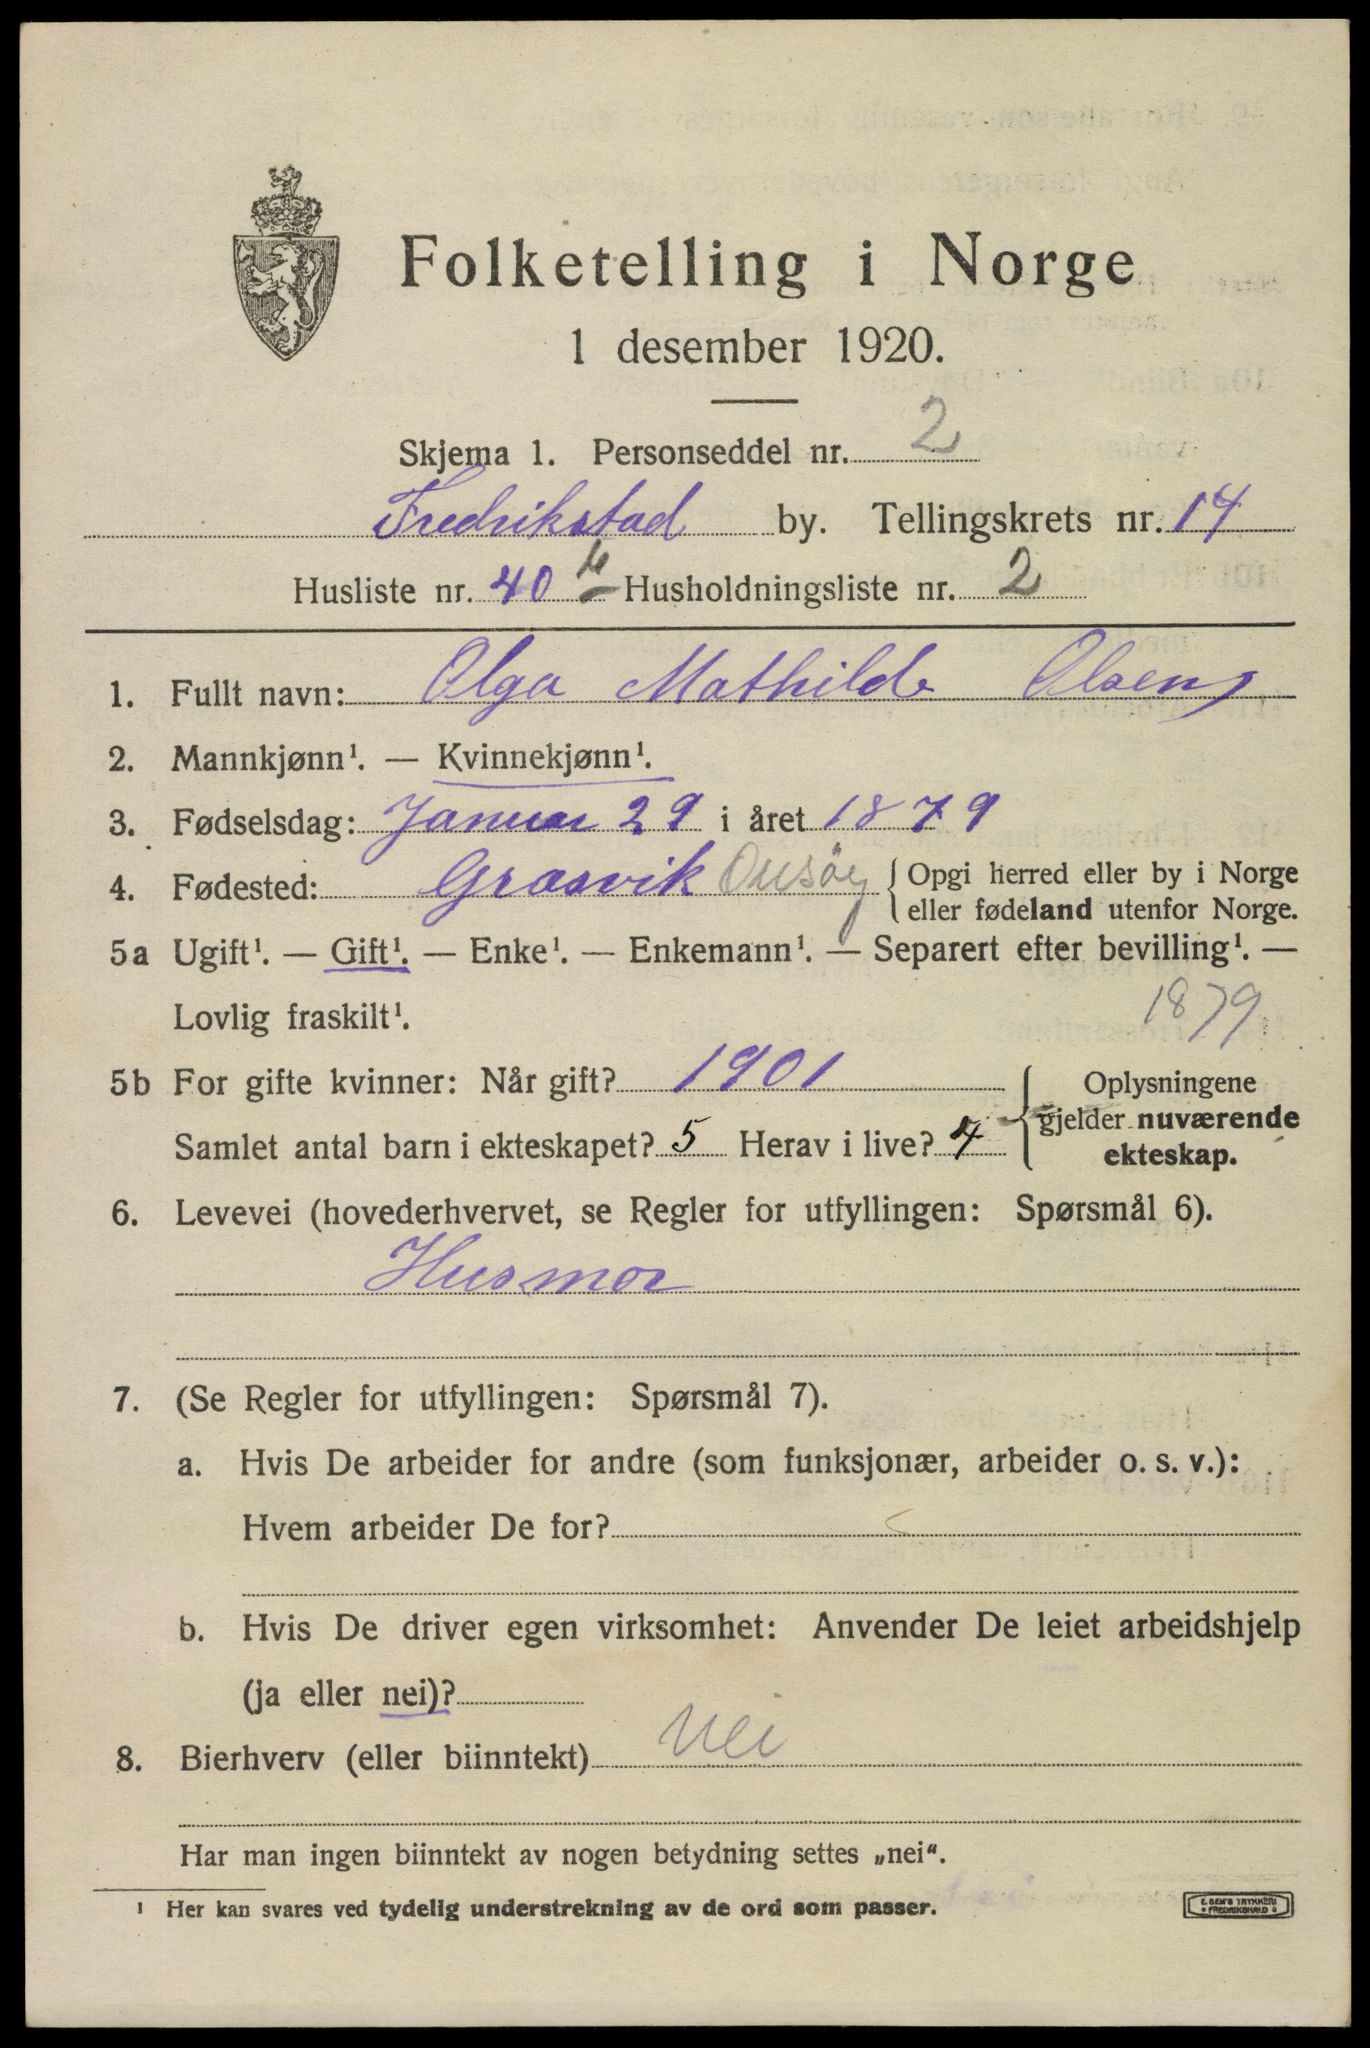 Folketelling i Norge
1 desember 1920.
Skjema 1. Personseddel nr. 2
Fredrikstad by. Tellingskrets nr. 14
Husliste nr. 40 Husholdningsliste nr. 2
1. Fullt navn: Olga Mathilde Olsen
2. Mannkjønn¹. — Kvinnekjønn¹.
3. Fødselsdag: Januar 29 i året 1879
4. Fødested: Græsvik Onsøy { Opgi herred eller by i Norge
eller fødeland utenfor Norge.
5a Ugift¹. — Gift¹. — Enke¹. — Enkemann¹. — Separert efter bevilling¹. —
Lovlig fraskilt¹. 1879
5b For gifte kvinner: Når gift? 1901 { Oplysningene
gjelder nuværende
Samlet antal barn i ekteskapet? 5 Herav i live? 4
ekteskap.
6. Levevei (hovederhvervet, se Regler for utfyllingen: Spørsmål 6).
Husmor
7. (Se Regler for utfyllingen: Spørsmål 7).
a. Hvis De arbeider for andre (som funksjonær, arbeider o. s. v.):
Hvem arbeider De for?
b. Hvis De driver egen virksomhet: Anvender De leiet arbeidshjelp
(ja eller nei)?
8. Bierhverv (eller biinntekt) Nei
Har man ingen biinntekt av nogen betydning settes „nei“.
¹ Her kan svares ved tydelig understrekning av de ord som passer.
E. SEM'S TRYKKERI
FREDRIKSHALD